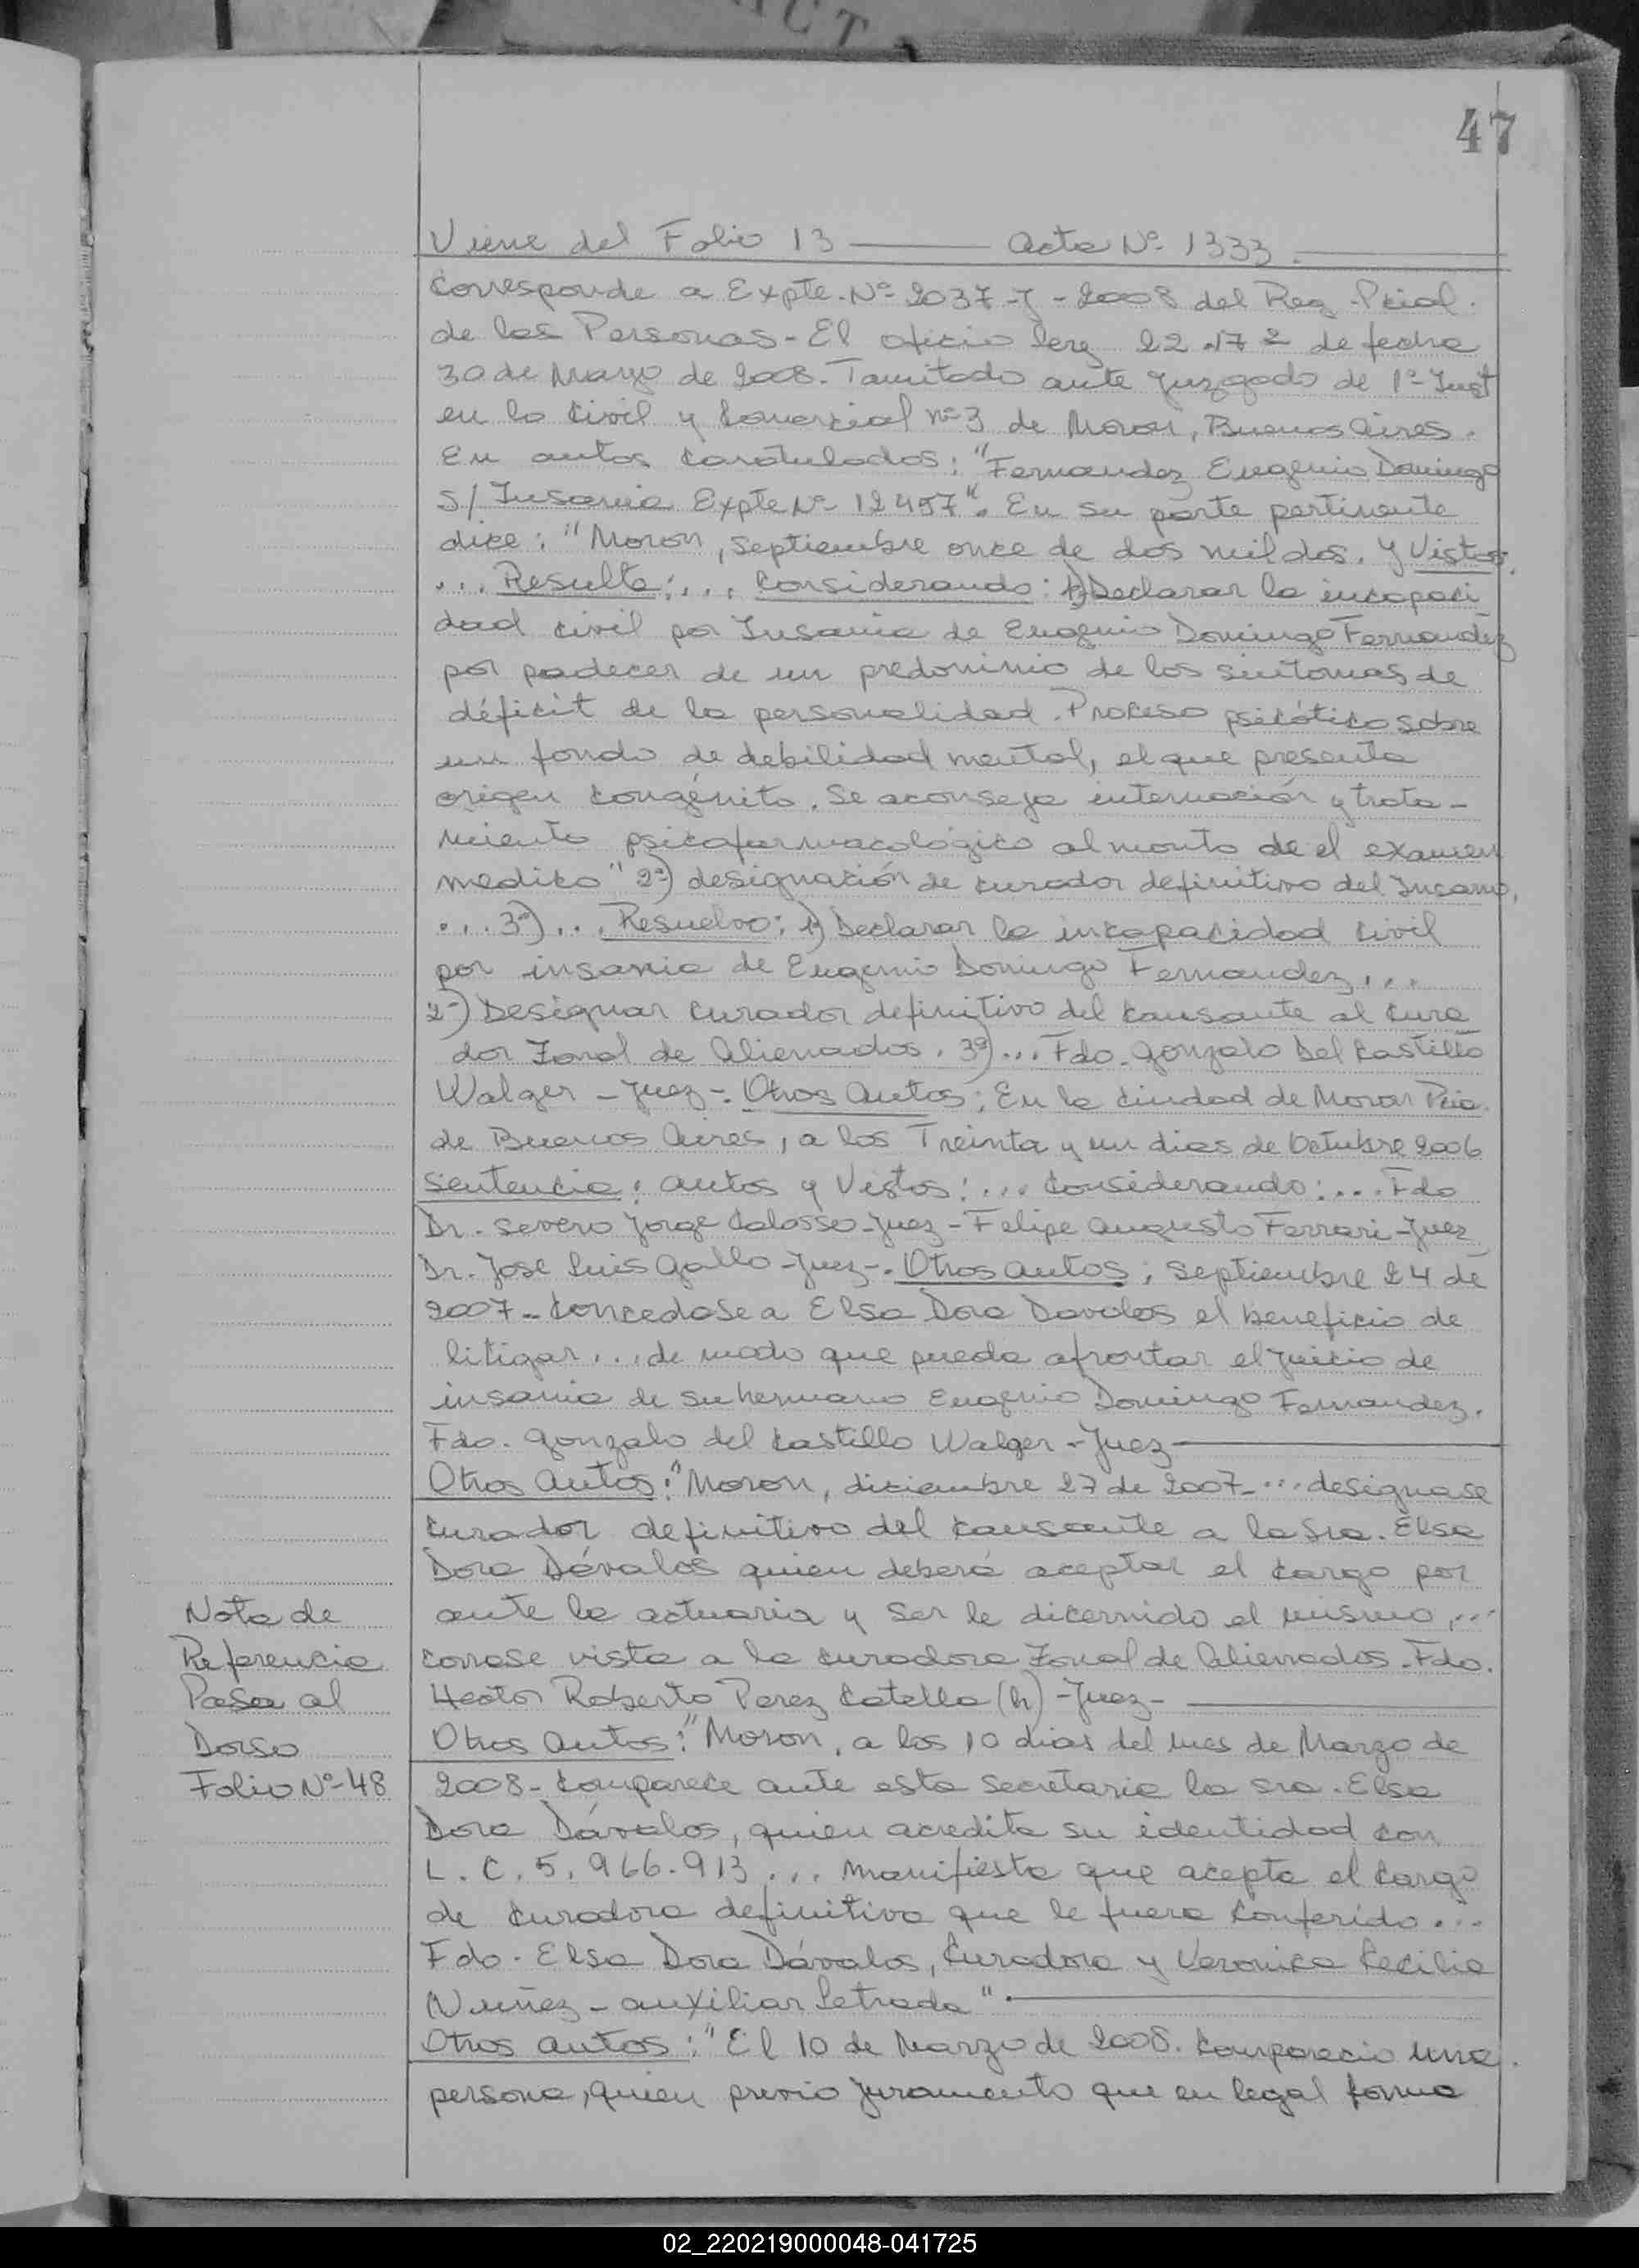 ACT
47
Viene del Folio 13 —— Acta Nº 1333.
Corresponde a Expte. Nº 2037-J-2008 del Reg. Pcial.
de las Personas - El oficio ley 22.172 de fecha
30 de Mayo de 2008. Tamitado ante Juzgado de 1º Inst
en lo Civil y Comercial nº 3 de Moron, Buenos Aires.
En autos caratulados: "Fernandez Eugenio Domingo
S/ Insania Expte Nº 12457". En su parte pertinente
dice: "Moron, Septiembre once de dos mil dos. Y Vistos.
... Resulta:... Considerando: 1º) Declarar la incapaci
dad civil por Insania de Eugenio Domingo Fernandez
por padecer de un predominio de los sintomas de
déficit de la personalidad. Proceso psicótico sobre
un fondo de debilidad mental, el que presenta
origen congénito. Se aconseja internación y trata-
miento psicofarmacológico al monto de el examen
medico" 2º) designación de curador definitivo del Insano.
... 3º)... Resuelvo: 1º) Declarar la incapacidad civil
por insania de Eugenio Domingo Fernandez...
2º) Designar curador definitivo del causante al cura
dor Zonal de Alienados. 3º)... Fdo. Gonzalo Del Castillo
Walger - Juez-. Otros Autos: En la ciudad de Moron Pcia.
de Buenos Aires, a los Treinta y un dias de Octubre 2006
Sentencia: autos y Vistos:... Considerando:... Fdo
Dr. Severo Jorge Calosso - Juez - Felipe Augusto Ferrari - Juez
Dr. Jose Luis Gallo - Juez-. Otros autos: Septiembre 24 de
2007 - Concedase a Elsa Dora Davalos el beneficio de
litigar... de modo que pueda afrontar el juicio de
insania de su hermano Eugenio Domingo Fernandez.
Fdo. Gonzalo del Castillo Walger - Juez ——
Otros Autos: "Moron, diciembre 27 de 2007-... designase
curador definitivo del causante a la Sra. Elsa
Dora Dávalos quien deberá aceptar el cargo por
ante la actuaria y ser le dicernido el mismo,...
corrase vista a la curadora Zonal de Alienados. Fdo.
Hector Roberto Perez Catella (h) - Juez - ——
Otros autos: "Moron, a los 10 dias del mes de Marzo de
2008 - comparece ante esta secretaria la Sra. Elsa
Dora Dávalos, quien acredita su identidad con
L. C. 5.966.913... manifiesta que acepta el cargo
de curadora definitiva que le fuera conferido...
Fdo. Elsa Dora Dávalos, Curadora y Veronica Cecilia
Nuñez - auxiliar Letrada". ——
Otros autos: "El 10 de Marzo de 2008. Comparecio una
persona, quien previo juramento que en legal forma
Nota de
Referencia
Pasa al
Dorso
Folio Nº 48
02_220219000048-041725